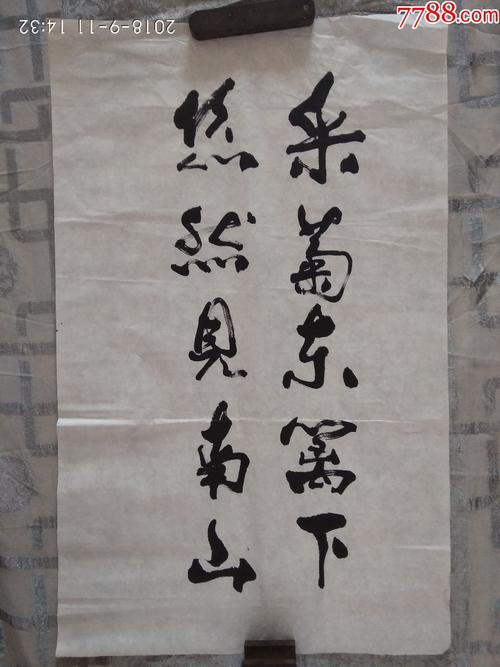 采菊东篱下
悠然见南山
2018-9-11 14:32
7788.com